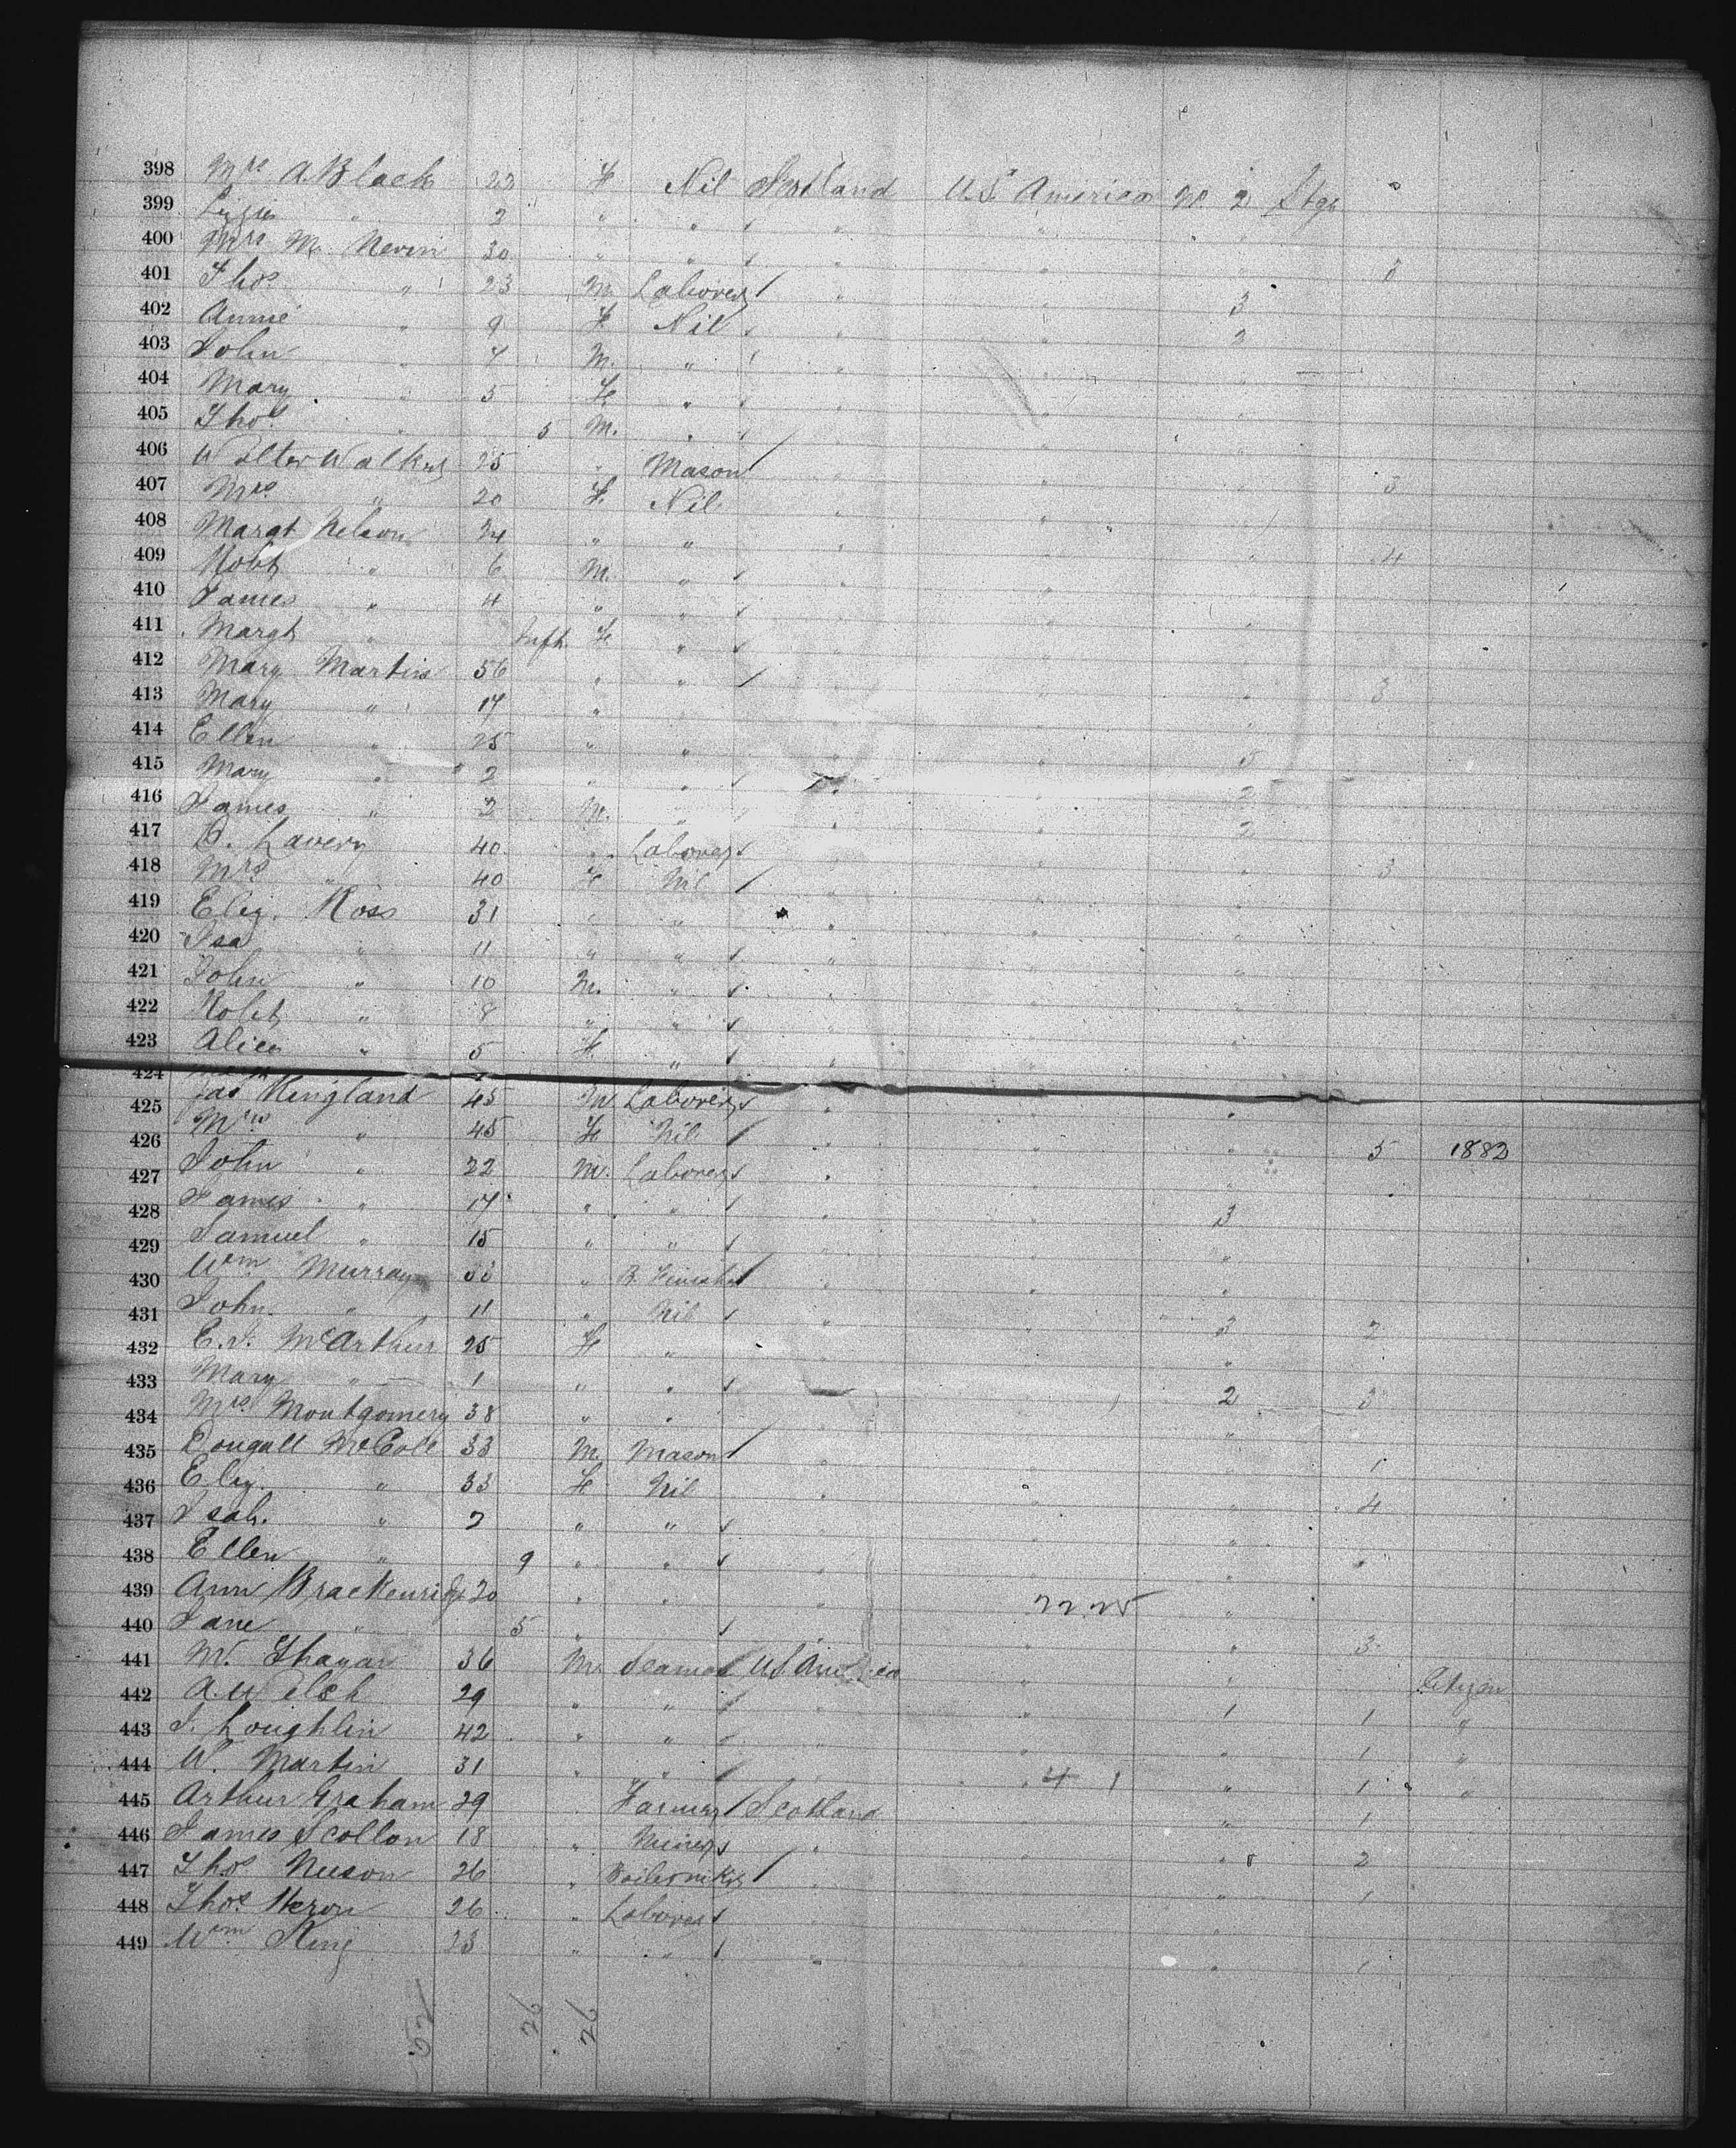 398 Mrs A. Black 22 F Nil Scotland U.S. America No 2 Stge
399 Lizzie " 2 " " " "
400 Mrs M. Nevin 30 " " " "
401 Thos " 23 M. Laborer " " 3
402 Annie " 9 F Nil " " 2
403 John " 7 M. " " "
404 Mary " 5 F " " "
405 Thos " 5 M. " " "
406 Walter Walker 25 " Mason " " "
407 Mrs " 20 F. Nil " " " 3
408 Margt Nelson 34 " " " "
409 Robt " 6 M. " " " " 4
410 James " 4 " " " "
411 Margt " Inft. F " " "
412 Mary Martin 56 " " "
413 Mary " 17 " " 3
414 Ellen " 25 " " " "
415 Mary " 2 " " " 5
416 James " 2 M. " " 2
417 D. Lavery 40 " Laborer " " 2
418 Mrs " 40 F Nil " " 3
419 Eliz. Ross 31 " " " "
420 Isa " 11 " " " "
421 John " 10 M. " " "
422 Robt " 8 " " " "
423 Alice " 5 F " " "
424
425 Jas Kingland 45 M Laborer " "
426 Mrs " 45 F Nil " " 5 1882
427 John " 22 M. Laborer " "
428 James " 17 " " " 3
429 Samuel " 15 " " " "
430 Wm Murray 33 " B. Finisher " "
431 John " 11 " Nil " " 3 2
432 E. J. McArthur 25 F " " "
433 Mary " 1 " " " 2 3
434 Mrs Montgomery 38 " " "
435 Dougall McColl 33 M. Mason " " 1
436 Eliz. " 33 F Nil " " 4
437 Isab. " 2 " " " "
438 Ellen " 9 " " " "
439 Ann Brackenridge 20 " " " 22.25 "
440 Jane " 5 " " " 3
441 W. Thayar 36 M. Seaman U.S. America " Citizen
442 A. Welsh 29 " " " 1 1 "
443 J. Loughlin 42 " " " " 1 "
444 W. Martin 31 " " " 4 1 " 1 "
445 Arthur Graham 29 " Farmer Scotland " 1
446 James Scollon 18 " Miner " " 2
447 Thos 26 " Boilermkr " " 1
448 Thos Heron 26 " Laborer
449 Wm King 23 " " " " 1
52 26 26